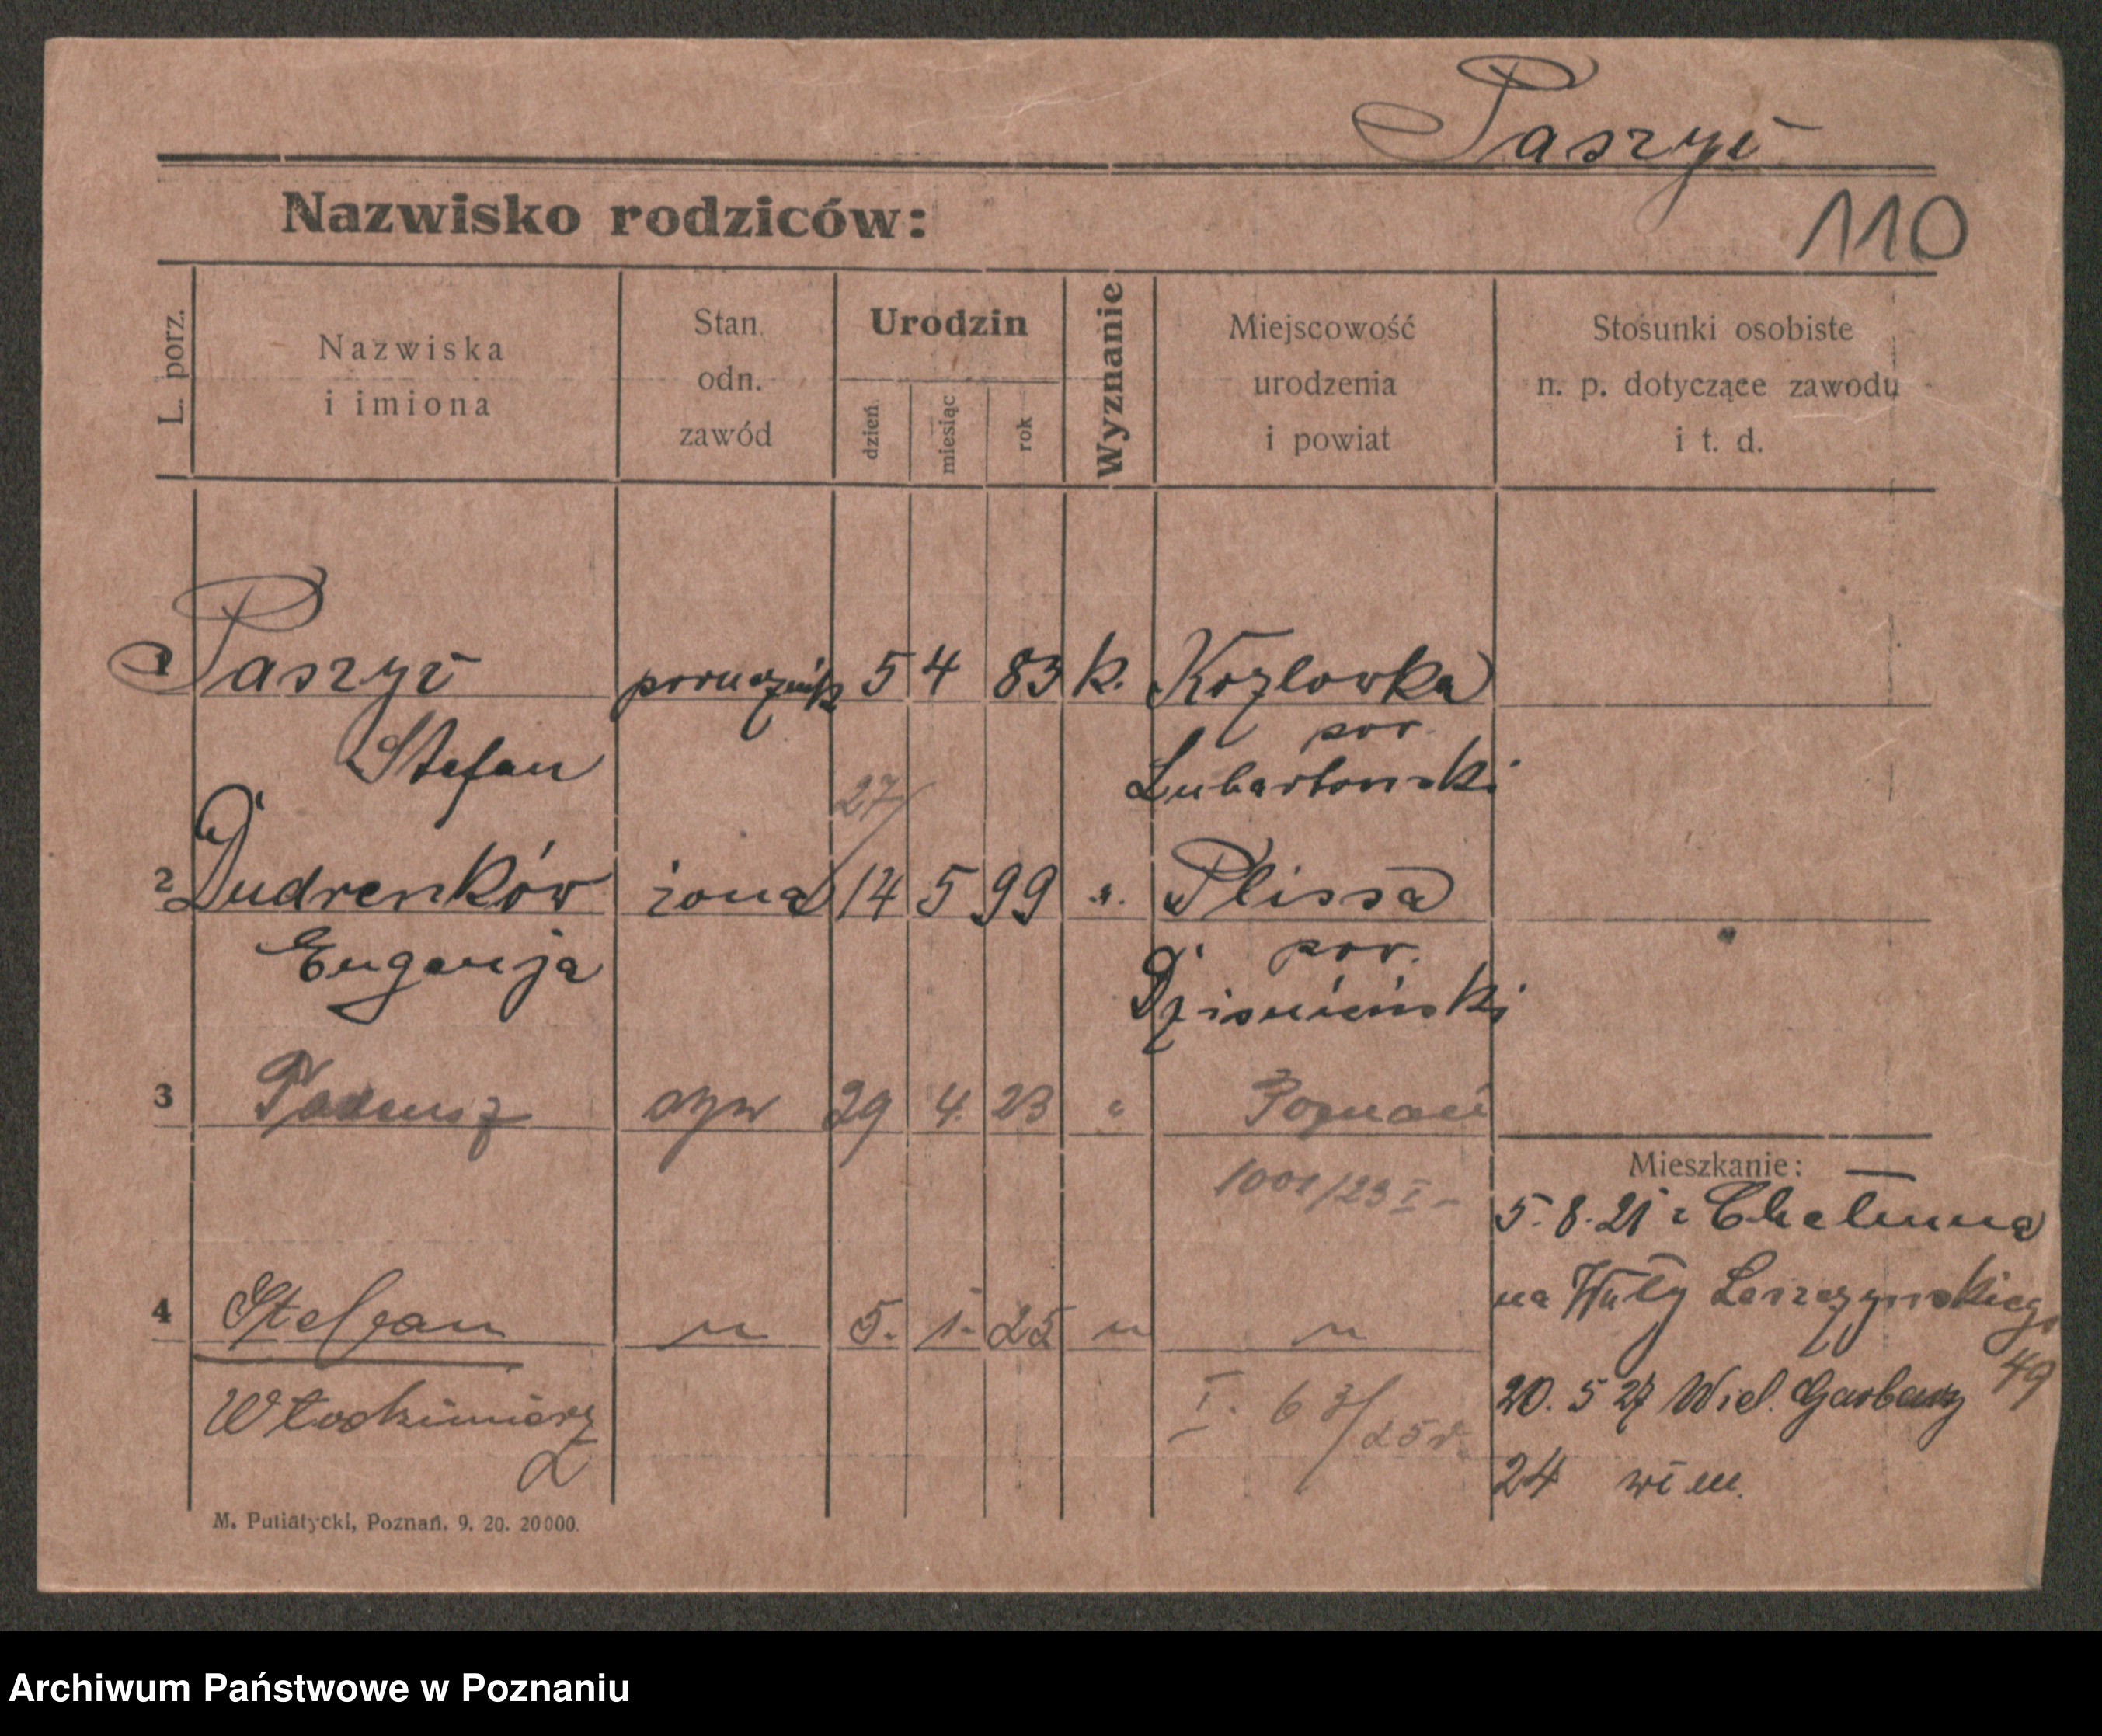 Paszyc
Nazwisko rodziców:
110
L. porz.
Nazwiska
i imiona
Stan
odn.
zawód
Urodzin
dzień
miesiąc
rok
Wyznanie
Miejscowość
urodzenia
i powiat
Stosunki osobiste
n. p. dotyczące zawodu
i t. d.
1 Paszyc porucznik 5 4 83 k. Kozlowka
Stefan pow.
Lubartowski
27/
2 Dudrenków żona 14 5 99 „ Plissa
Eugenija pow.
Dzisnieński
3 Tadeusz syn 29 4. 23 „ Poznań
1001/23 I
Mieszkanie: —
5.8.21 z Chełmna
na Wały Leszczynskiego
49
4 Stefan „ 5. 1. 25 „ „
Włodzimierz
I. 63/25
20. 5 27 Wiel. Garbary
24
M. Putiatycki, Poznań. 9. 20. 20000.
Archiwum Państwowe w Poznaniu